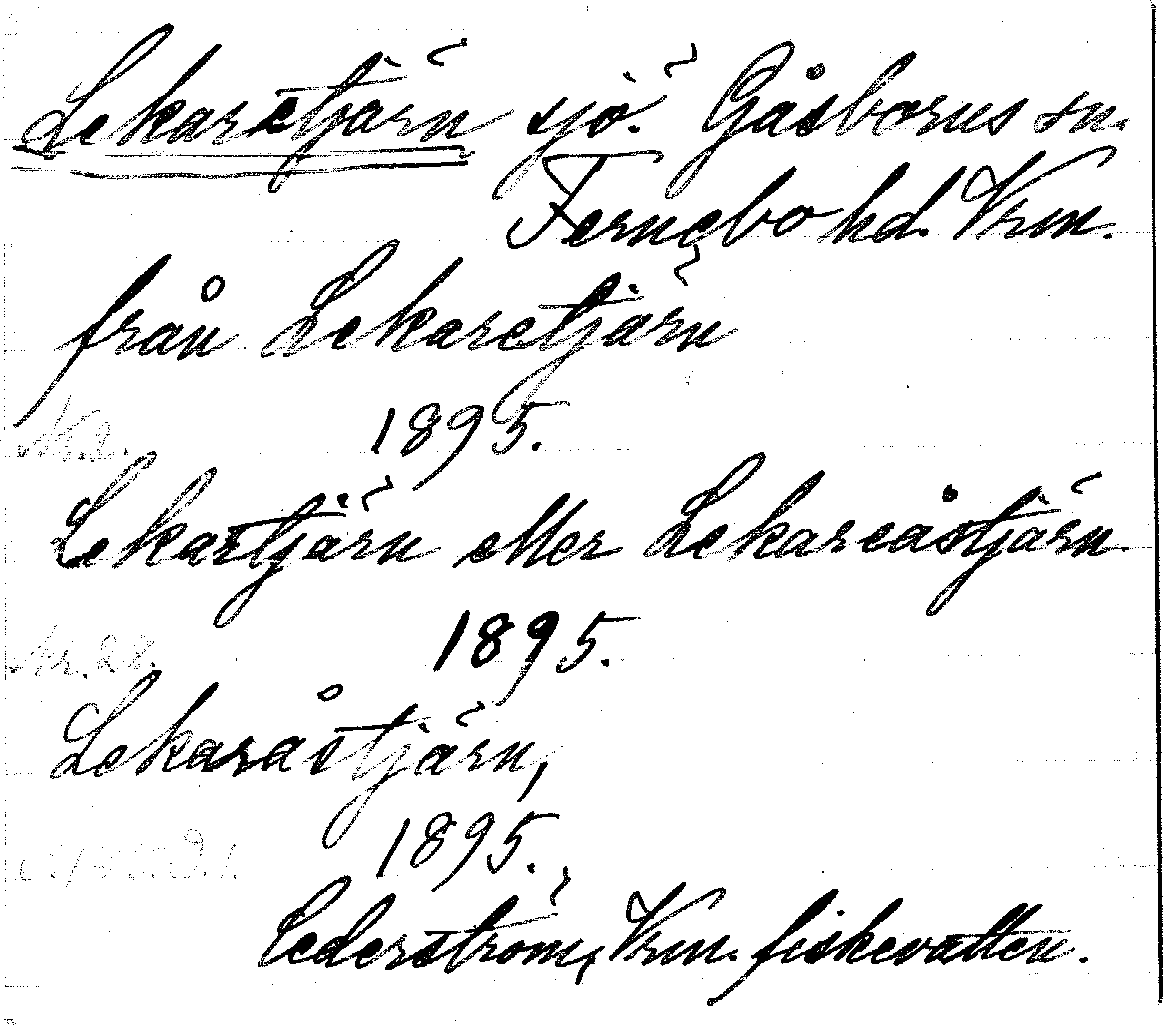 Lekaretjärn sjö. Gåsborns sn.
Fernebo hd. Vrm.
från Lekaretjärn
1895.
Lekartjärn eller Lekareåstjärn
1895.
Nr. 28.
Lekaråstjärn,
1895.
Cederström, Vrm. fiskevatten.